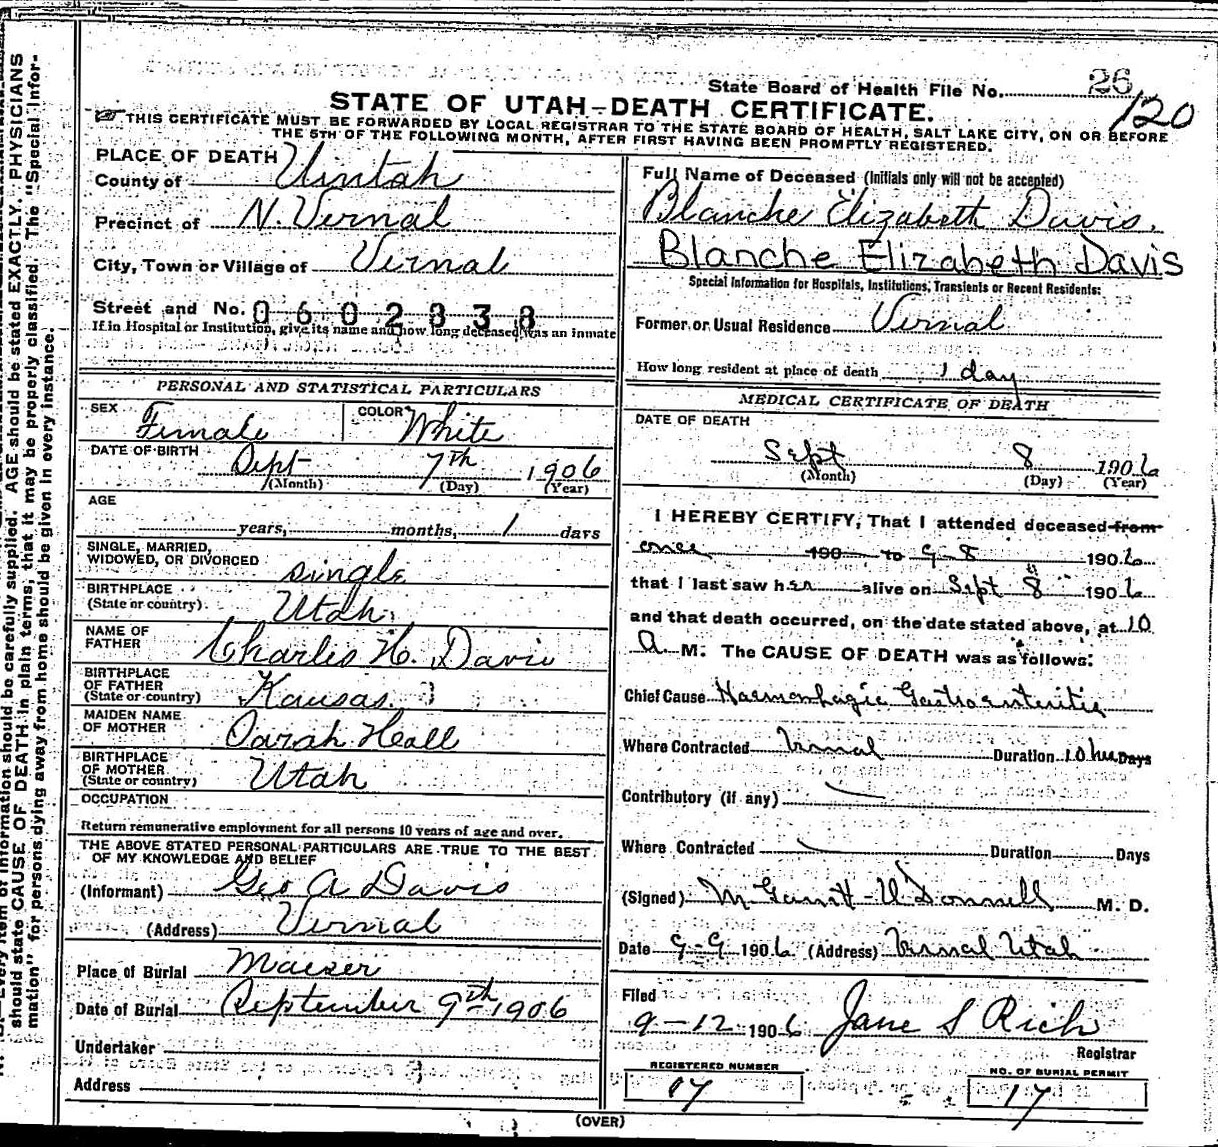 State Board of Health File No. 26
120
STATE OF UTAH—DEATH CERTIFICATE.
THIS CERTIFICATE MUST BE FORWARDED BY LOCAL REGISTRAR TO THE STATE BOARD OF HEALTH, SALT LAKE CITY, ON OR BEFORE
THE 5TH OF THE FOLLOWING MONTH, AFTER FIRST HAVING BEEN PROMPTLY REGISTERED.
PLACE OF DEATH
County of Uintah
Precinct of N. Vernal
City, Town or Village of Vernal
Street and No. 0602838
If in Hospital or Institution, give its name and how long deceased was an inmate
PERSONAL AND STATISTICAL PARTICULARS
SEX Female COLOR White
DATE OF BIRTH Sept 7th 1906
(Month) (Day) (Year)
AGE
years, months, 1 days
SINGLE, MARRIED,
WIDOWED, OR DIVORCED single
BIRTHPLACE
(State or country) Utah
NAME OF
FATHER Charles H. Davis
BIRTHPLACE
OF FATHER
(State or country) Kansas
MAIDEN NAME
OF MOTHER Sarah Heall
BIRTHPLACE
OF MOTHER
(State or country) Utah
OCCUPATION
Return remunerative employment for all persons 10 years of age and over.
THE ABOVE STATED PERSONAL PARTICULARS ARE TRUE TO THE BEST
OF MY KNOWLEDGE AND BELIEF
(Informant) Geo A Davis
(Address) Vernal
Place of Burial Maeser
Date of Burial September 9th 1906
Undertaker
Address
Full Name of Deceased (Initials only will not be accepted)
Blanche Elizabeth Davis.
Blanche Elizabeth Davis
Special Information for Hospitals, Institutions, Transients or Recent Residents:
Former or Usual Residence Vernal
How long resident at place of death 1 day
MEDICAL CERTIFICATE OF DEATH
DATE OF DEATH
Sept 8 1906
(Month) (Day) (Year)
I HEREBY CERTIFY, That I attended deceased from
once 190 to 9-8 1906
that I last saw her alive on Sept 8" 1906
and that death occurred, on the date stated above, at 10
A. M. The CAUSE OF DEATH was as follows:
Chief Cause Haemorrhagic Gastroenteritis
Where Contracted Vernal Duration 10 hrs Days
Contributory (if any)
Where Contracted Duration Days
(Signed) M. D.
Date 9-9 1906 (Address) Vernal Utah
Filed
9-12 1906 Jane S Rich
Registrar
REGISTERED NUMBER
NO. OF BURIAL PERMIT
17
(OVER)
should state CAUSE OF DEATH in plain terms, that it may be properly classified. The "Special Infor-
mation" for persons dying away from home should be given in every instance.